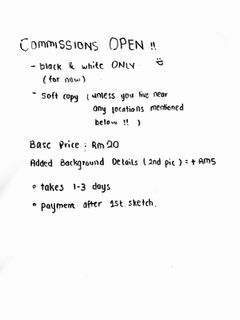 COMMISSIONS OPEN !!
- black & white ONLY
(for now)
- Soft copy (unless you live near
any locations mentioned
below !! )
Base Price : Rm 20
Added Background Details (2nd pic) = + RM5
• takes 1-3 days
• payment after 1st sketch.